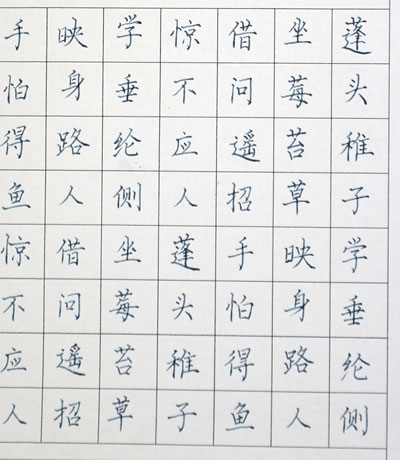 蓬头稚子学垂纶侧
坐莓苔草映身路人
借问遥招手怕得鱼
惊不应人蓬头稚子
学垂纶侧坐莓苔草
映身路人借问遥招
手怕得鱼惊不应人